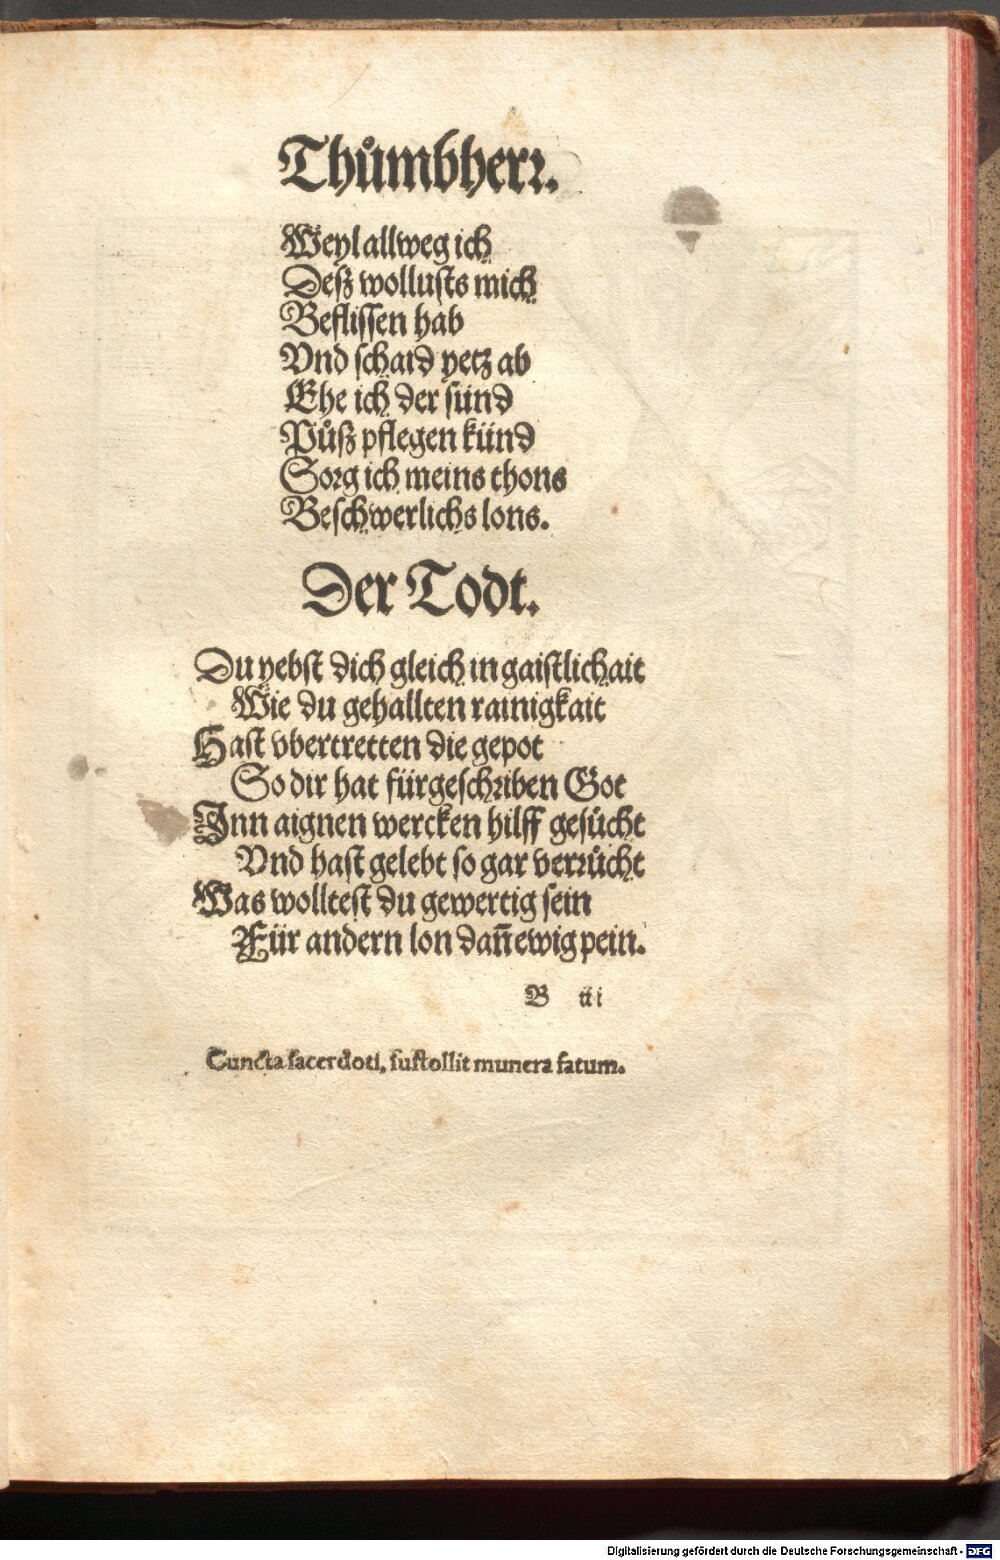 Thůmbherr.
Weyl allweg ich
Desz wollusts mich
Beflissen hab
Vnd schaid yetz ab
Ehe ich der sünd
Půsz pflegen künd
Sorg ich meins thons
Beschwerlichs lons.
Der Todt.
Du yebst dich gleich in gaistlichait
Wie du gehallten rainigkait
Hast vbertretten die gepot
So dir hat fürgeschriben Got
Inn aignen wercken hilff gesůcht
Vnd hast gelebt so gar verrůcht
Was wolltest du gewertig sein
Für andern lon dañ ewig pein.
B iii
Cuncta sacerdoti, sustollit munera fatum.
Digitalisierung gefördert durch die Deutsche Forschungsgemeinschaft - DFG